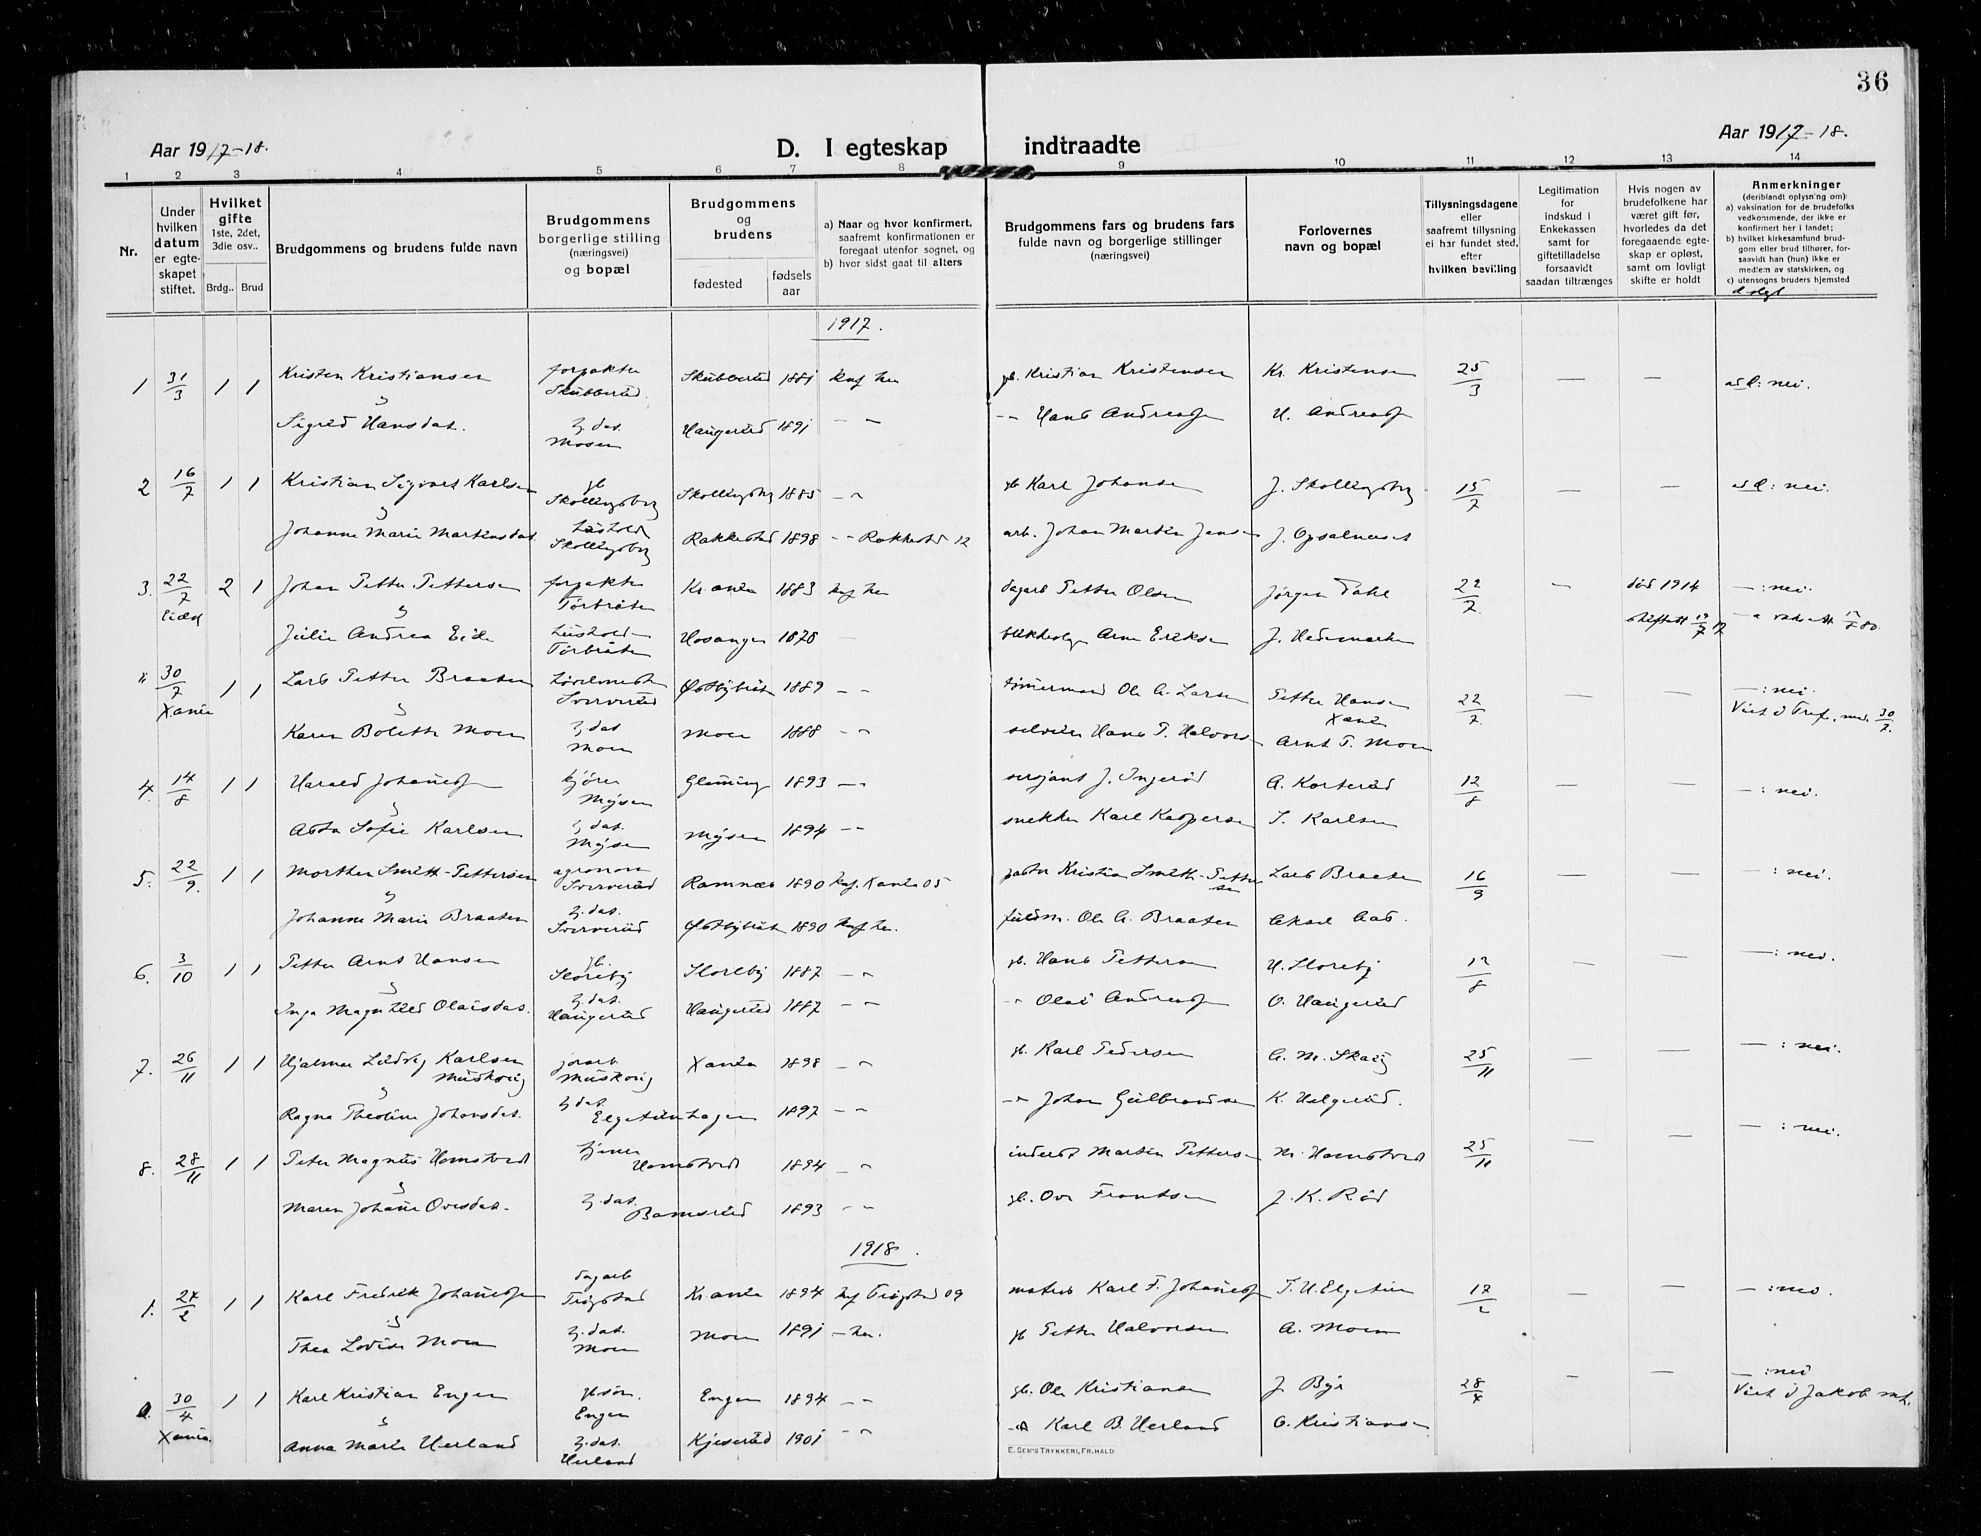 36
Aar 1917-18.
D. I egteskap indtraadte
Aar 1917-18.
1 2 3 4 5 6 7 8 9 10 11 12 13 14
Nr.
Under hvilken datum er egteskapet stiftet.
Hvilket gifte 1ste, 2det, 3die osv..
Brdg.. Brud
Brudgommens og brudens fulde navn
Brudgommens borgerlige stilling (næringsvei) og bopæl
Brudgommens og brudens
fødested
fødsels aar
a) Naar og hvor konfirmert, saafremt konfirmationen er foregaat utenfor sognet, og
b) hvor sidst gaat til alters
Brudgommens fars og brudens fars fulde navn og borgerlige stillinger (næringsvei)
Forlovernes navn og bopæl
Tillysningsdagene eller saafremt tillysning ei har fundet sted, efter hvilken bevilling
Legitimation for indskud i Enkekassen samt for giftetilladelse forsaavidt saadan tiltrænges
Hvis nogen av brudefolkene har været gift før, hvorledes da det foregaaende egteskap er opløst, samt om lovligt skifte er holdt
Anmerkninger (deriblandt oplysning om)
a) vaksination for de brudefolks vedkommende, der ikke er konfirmert her i landet;
b) hvilket kirkesamfund brudgom eller brud tilhører, forsaavidt han (hun) ikke er medlem av statskirken, og
c) utensogns bruders hjemsted
1917.
1 31/3 1 1 Kristen Kristiansen forpakter Skubberud 1881 konf her gb. Kristian Kristensen Kr. Kristensen 25/3 — — nei.
Skubberud.
Sigrid Hansdat. g.dat. Mosen Haugerud 1891 — " — " Hans Andreass H. Andreass
2 16/7 1 1 Kristian Sigvart Karlsen gb Skollingsborg Skollingsbrg 1885 — " gb Karl Johansen J. Skollingsbrg 15/7 — — nei.
Johanne Marie Martinsdat Skollingsborg Rakkestad 1898 — " Rakkestad 12 arb. Johan Martin Jensen J. Opsalneset
3. 22/7 2 1 Johan Petter Pettersen forpakter Kr.ania 1883 konf her dagarb Petter Olsen Jørgen Dahl 22/7. — død 1914 — : nei.
Julie Andrea Eide Hosanger 1878 — Arne Eriksen J. Hedemark
" 30/7 Xania 1 1 Lars Petter Braaten Sververud Østbybråt 1889 — " tømmermand Ole A. Larsen Petter Hansen Xania 22/7. — — — : nei.
Karen Bolette Moen g.dat Moen Moen 1888 — " selveier Hans P. Halvorsen Arnt P. Moen
4. 14/8 1 1 Harald Johaness kjører Mysen Glemming 1893 — " sersjant J. Ingerød A. Korterød 12/8 — — — : nei.
Asta Sofie Karlsen g.dat. Mysen Mysen 1894 — " snekker Karl Kaspersen S. Karlsen
5. 22/9. 1 1 Morthen Smith-Pettersen agronom Sververud Ramnæs 1890 konf. Xania 05 pastor Kristian Smith-Pettersen Lars Braaten 16/9 — — — : nei.
Johanne Marie Braaten g.dat. Sververud Østbybråt 1890 konf her. fuldm. Ole A. Braaten Aksel Aas.
6. 3/10 1 1 Petter Arnt Hansen gb. Sloreby Sloreby 1887 — " gb. Hans Pettersen H. Sloreby 12/8 — — — : nei.
Inga Magnhild Olaisdat. g.dat. Haugerud Haugerud 1887 — " — " Olai Andreass O. Haugerud
7. 26/11 1 1 Hjalmar Ludvig Karlsen Muskorig Xania 1898 — " gb. Karl Pedersen A. M. Skaug 25/11 — — — : nei.
Ragna Theoline Johansdat. g.dat. Elgetunhagen 1897 — " — " Johan Gulbrandsen K. Helgerud.
8. 28/11 1 1 Peter Magnus Homstvedt tjener Homstvedt 1894 — " inderst Martin Petters M. Homstvedt 25/11 — — — : nei.
Maren Johane Ovesdat. g.dat. Bamsrud 1893 — " gb. Ove Frantsen J. K. Rød
1918.
1. 27/2 1 1 Karl Fredrik Johaness dagarb Trøgstad Kr.ania 1894 konf Trøgstad 09 matros Karl F. Johaness T. H. Elgetun 17/2 — — — : nei.
Thea Lovise Moen g.dat. Moen Moen 1891 — her. gb Petter Halvorsen A. Moen
2. 30/4 Xania. 1 1 Karl Kristian Engen gb.søn. Engen Engen 1894 — " gb. Ole Kristiansen J. Bye 28/4 — — — : nei
Viet i Jakob mk.
Anna Marie Herland g.dat. Herland Kjeserud 1901 — " — " Karl B. Herland O. Kristiansen
E. SEM'S TRYKKERI, FR.HALD